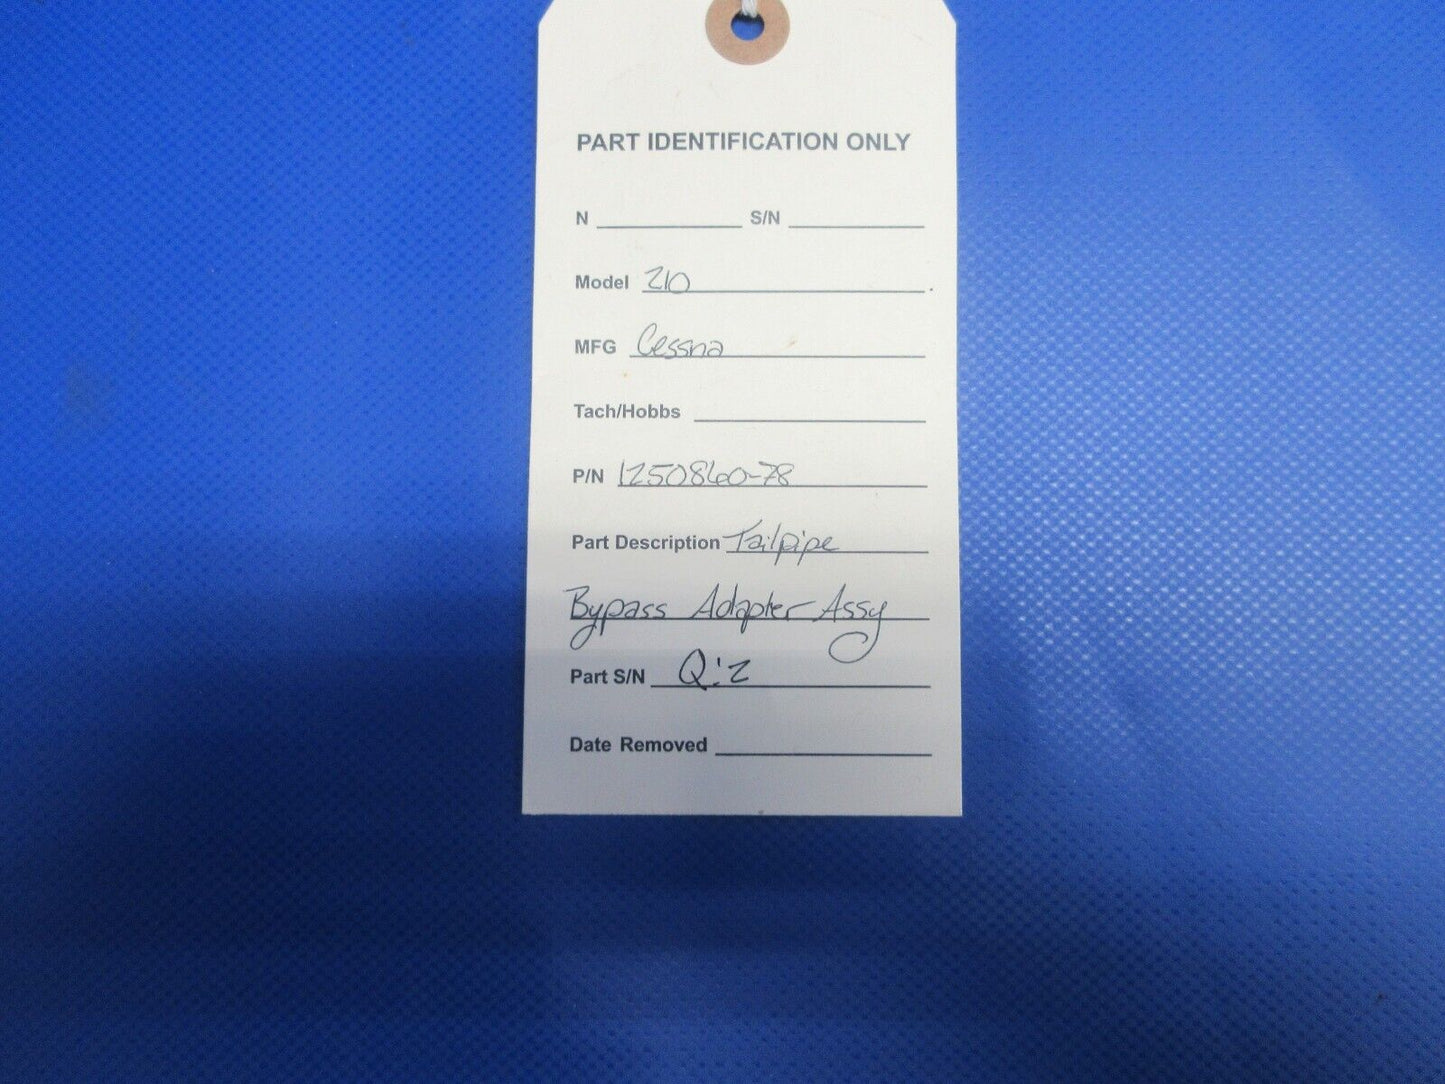 PART IDENTIFICATION ONLY
N S/N
Model 210
MFG Cessna
Tach/Hobbs
P/N 1250860-78
Part Description Tailpipe
Bypass Adapter Assy
Part S/N Q:2
Date Removed